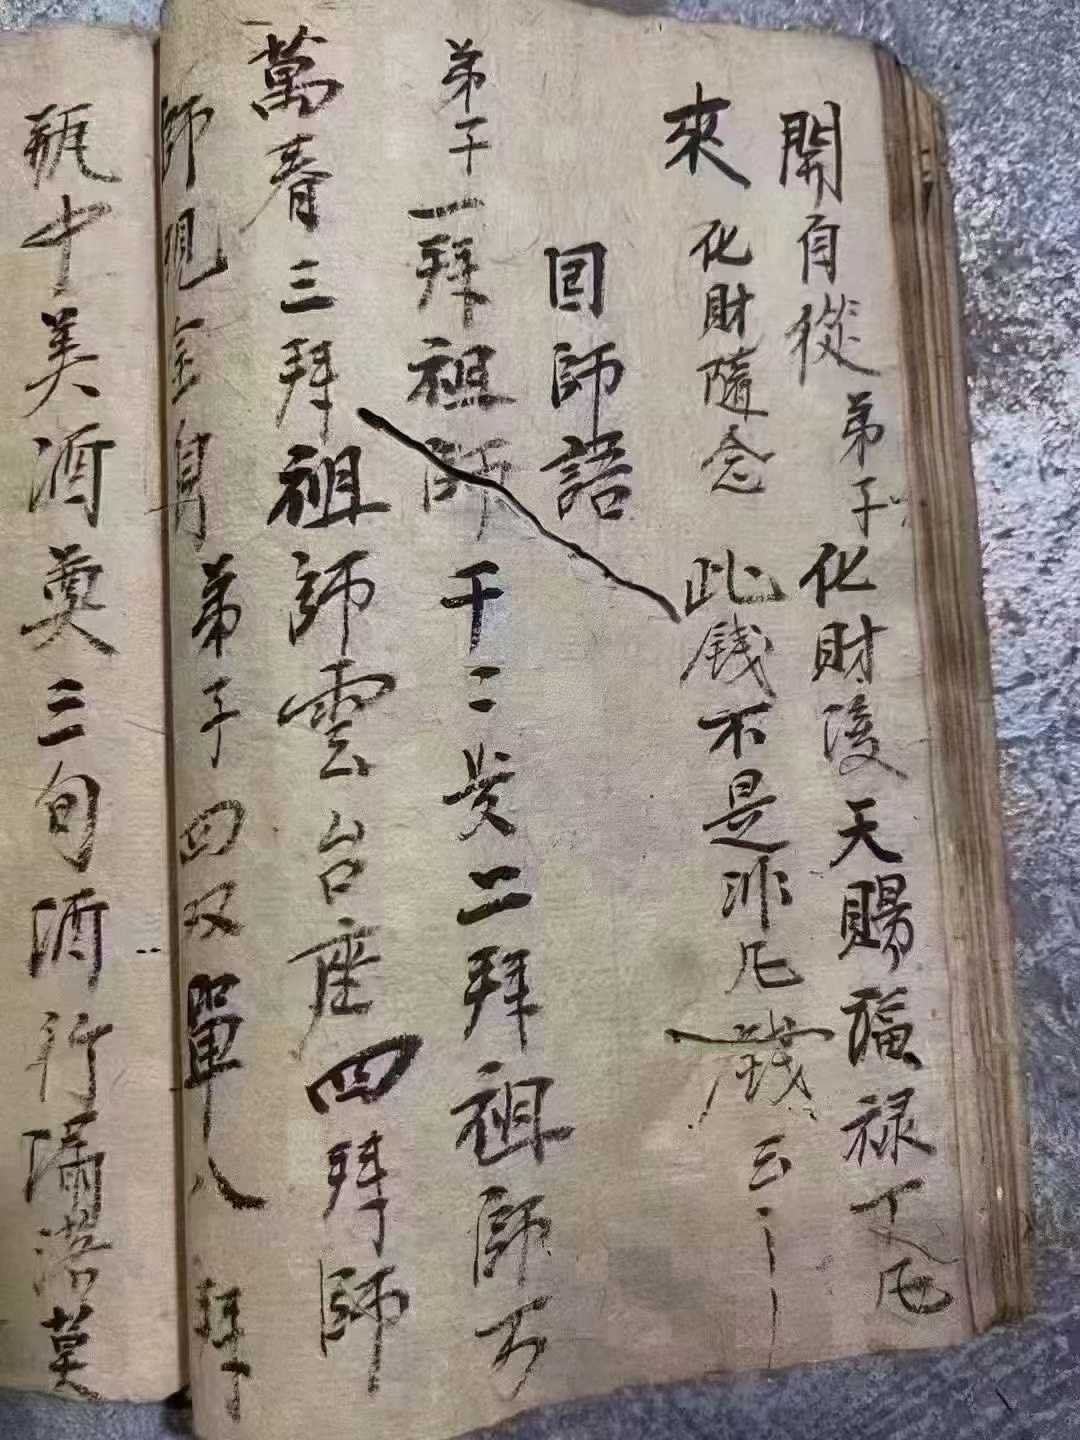 開自從弟子化財凌天賜福禄丈凡
來化財隨念此銭不是非凡銭云
回師語
弟子一拜祖師千二炎二拜祖師万
萬春三拜祖師雲台座四拜師
師現金身弟子四双單八拜
瓶中美酒奠三旬酒行滿落莫